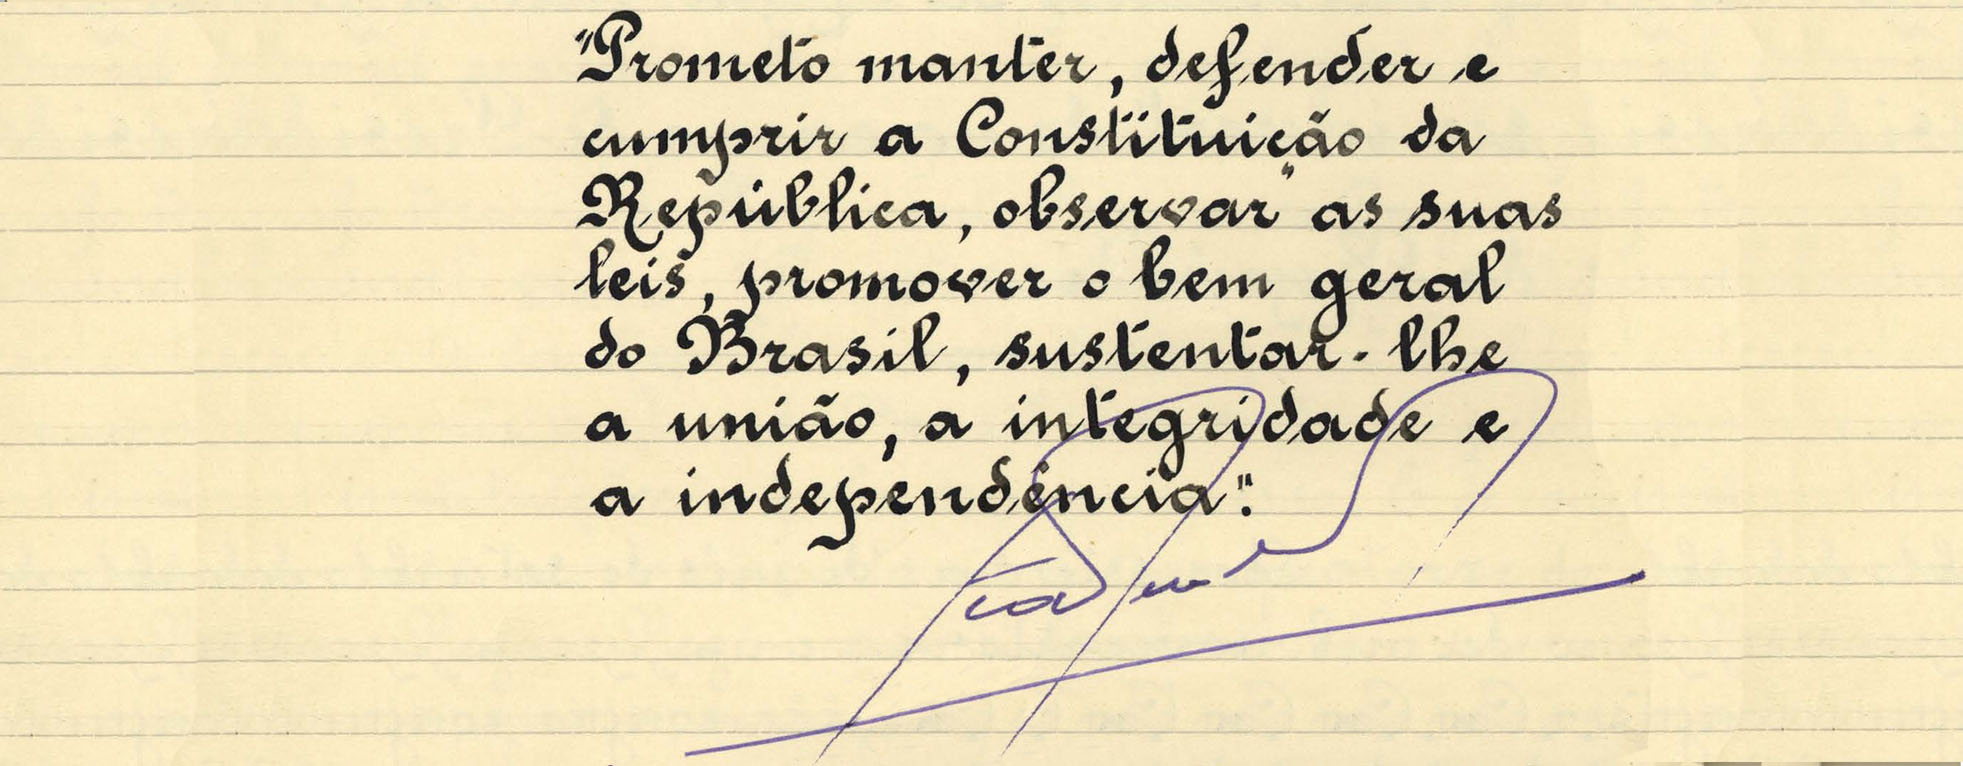 "Prometo manter, defender e
cumprir a Constituição da
República, observar as suas
leis, promover o bem geral
do Brasil, sustentar-lhe
a união, a integridade e
a independência".